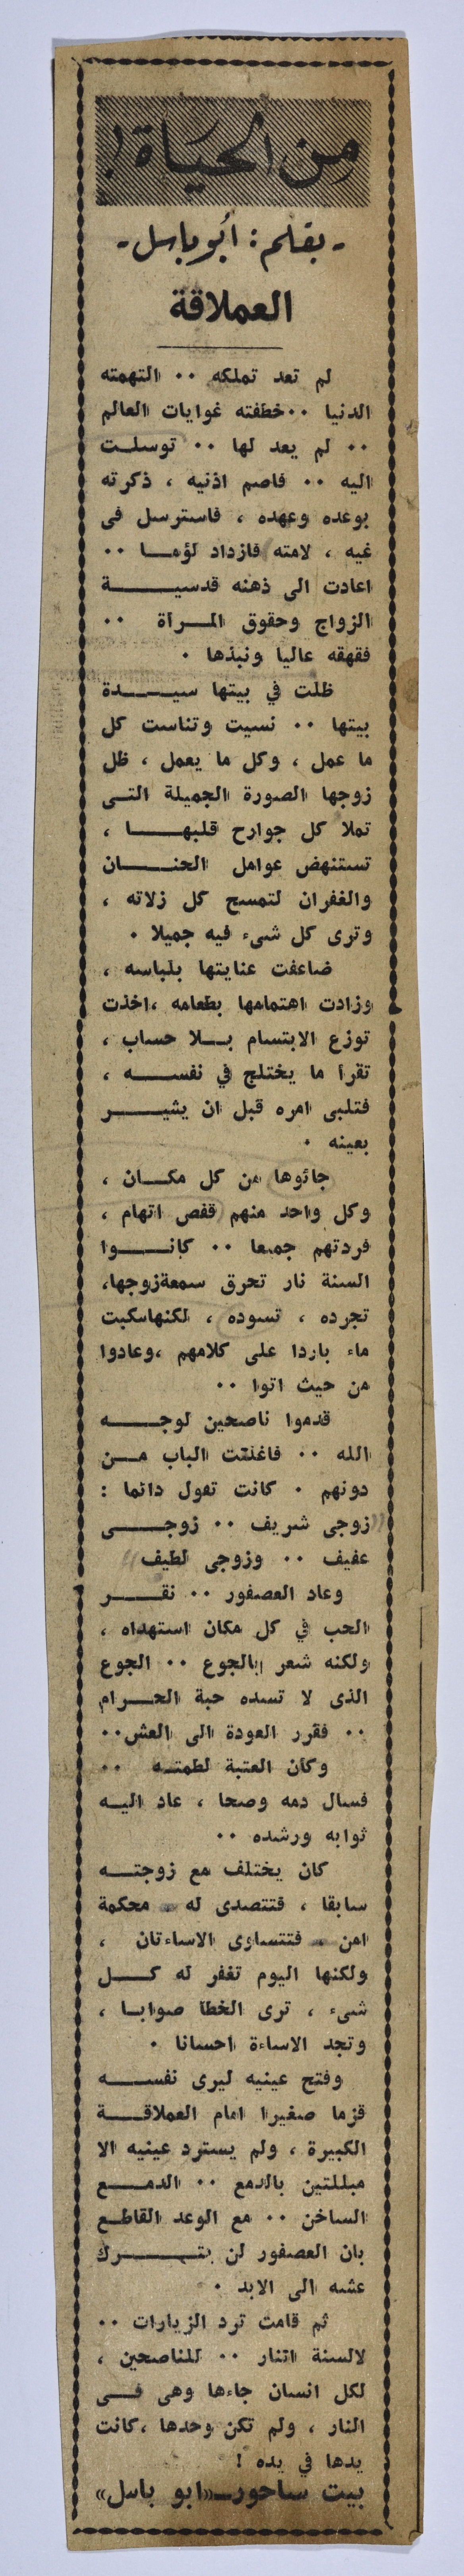 من الحياة !
- بقلم : أبو باسل -
العملاقة
لم تعد تملكه ٠٠ التهمته
الدنيا ٠٠ خطفته غوايات العالم
٠٠ لم يعد لها ٠٠ توسلت
اليه ٠٠ فاصم اذنيه ، ذكرته
بوعده وعهده ، فاسترسل فى
غيه ، لامته فازداد لؤما ٠٠
اعادت الى ذهنه قدسية
الزواج وحقوق المرأة ٠٠
فقهقه عاليا ونبذها ٠
ظلت في بيتها سيدة
بيتها ٠٠ نسيت وتناست كل
ما عمل ، وكل ما يعمل ، ظل
زوجها الصورة الجميلة التى
تملا كل جوارح قلبها ،
تستنهض عوامل الحنان
والغفران لتمسح كل زلاته ،
وترى كل شىء فيه جميلا ٠
ضاعفت عنايتها بلباسه ،
وزادت اهتمامها بطعامه ،اخذت
توزع الابتسام بلا حساب ،
تقرأ ما يختلج في نفسه ،
فتلبى امره قبل ان يشير
بعينه ٠
جائوها من كل مكان ،
وكل واحد منهم قفص اتهام ،
فردتهم جميعا ٠٠ كانوا
السنة نار تحرق سمعةزوجها،
تجرده ، تسوده ، لكنهاسكبت
ماء باردا على كلامهم ،وعادوا
من حيث اتوا ٠٠
قدموا ناصحين لوجه
الله ٠٠ فاغلقت الباب من
دونهم ٠ كانت تقول دائما :
"زوجى شريف ٠٠ زوجى
عفيف ٠٠ وزوجى لطيف"
وعاد العصفور ٠٠ نقر
الحب في كل مكان استهداه ،
ولكنه شعر بالجوع ٠٠ الجوع
الذى لا تسده حبة الحرام
٠٠ فقرر العودة الى العش٠٠
وكأن العتبة لطمته ٠٠
فسال دمه وصحا ، عاد اليه
ثوابه ورشده ٠٠
كان يختلف مع زوجته
سابقا ، فتتصدى له محكمة
امن فتتساوى الاساءتان ،
ولكنها اليوم تغفر له كل
شىء ، ترى الخطا صوابا ،
وتجد الاساءة احسانا ٠
وفتح عينيه ليرى نفسه
قزما صغيرا امام العملاقة
الكبيرة ، ولم يسترد عينيه الا
مبللتين بالدمع ٠٠ الدمع
الساخن ٠٠ مع الوعد القاطع
بان العصفور لن يترك
عشه الى الابد ٠
ثم قامت ترد الزيارات ٠٠
لالسنة النار ٠٠ للناصحين ،
لكل انسان جاءها وهى فى
النار ، ولم تكن وحدها ،كانت
يدها في يده !
بيت ساحور_«ابو باسل»